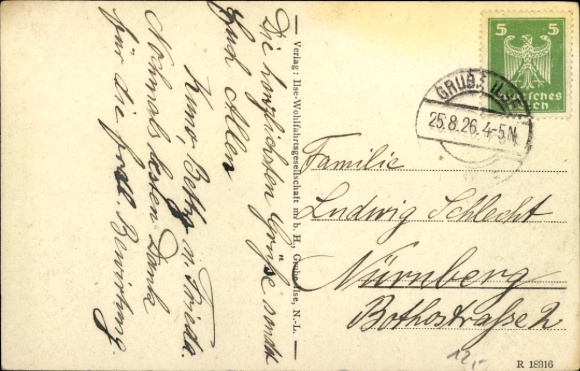 Die herzlichsten Grüße sendet
Euch Allen
Kuno, Betty u. Frieda.
Nochmals besten Dank
für die frdl. Bewirtung.
Verlag: Ilse-Wohlfahrtsgesellschaft m. b. H., Grube Ilse, N.-L.
5 5
Deutsches
Reich
GRUBE ILSE
25.8.26. 4-5N
Familie
Ludwig Schlecht
Nürnberg
Bothostrasse 2
12,-
R 18316